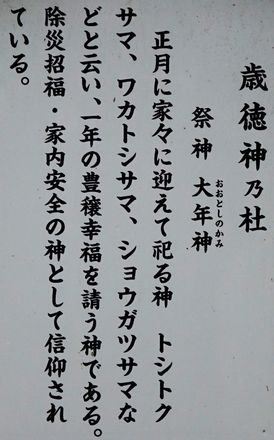 歳徳神乃杜
祭神 大年神
おおとしのかみ
正月に家々に迎えて祀る神 トシトク
サマ、ワカトシサマ、ショウガツサマな
どと云い、一年の豊穣幸福を請う神である。
除災招福・家内安全の神として信仰され
ている。